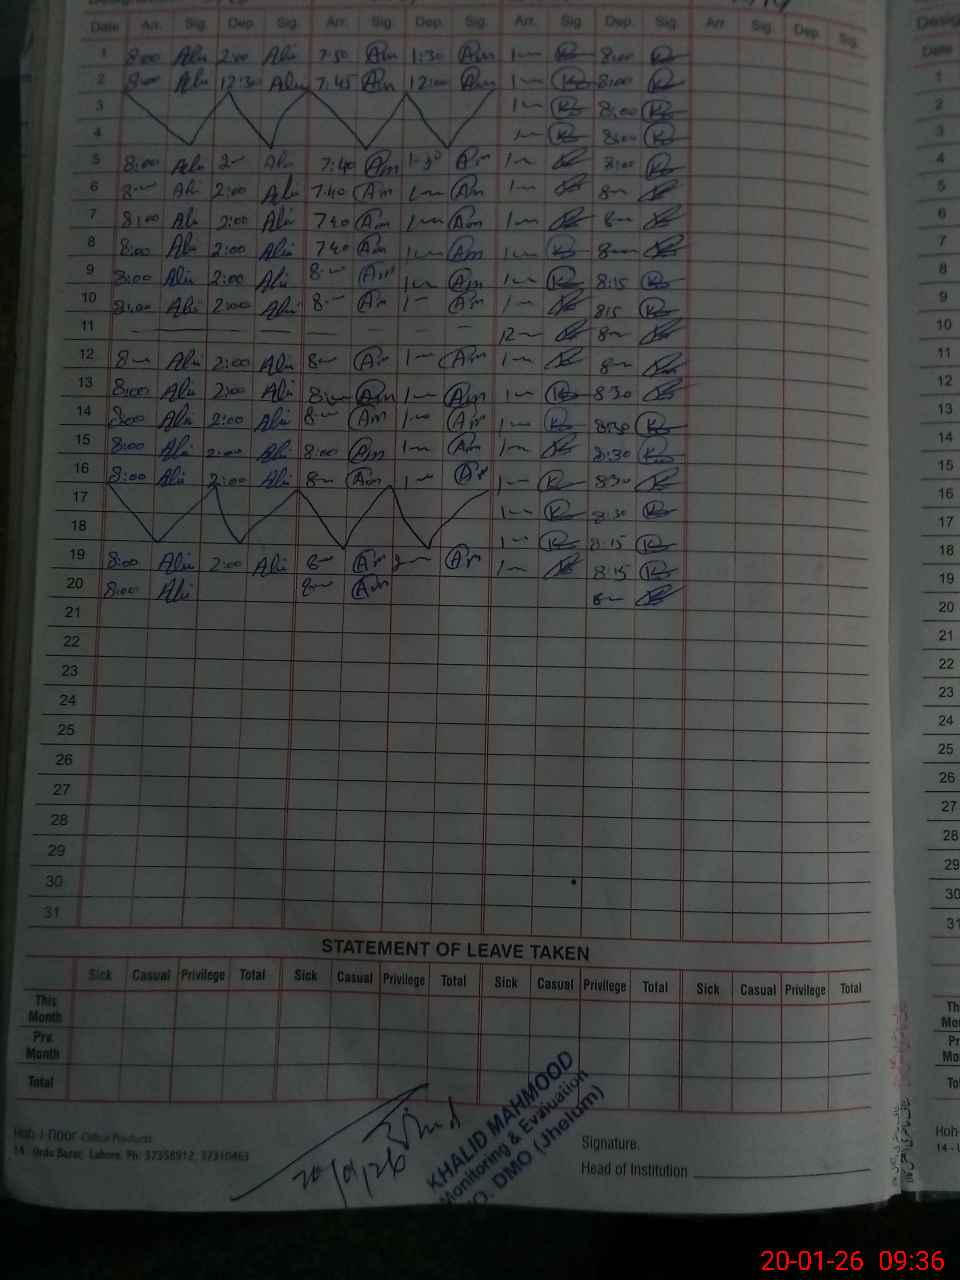 Date Arr. Sig. Dep. Sig. Arr. Sig. Dep. Sig. Arr. Sig. Dep. Sig. Arr Sig. Dep. Sig.
1 8:00 Ali 2:00 Ali 7:50 Am 1:30 Am 1— 8:00
2 8:00 Ali 12:30 Ali 7:45 Am 12:00 Am 1— 8:00
3 1— 8:00
4 1— 8:00
5 8:00 Ali 2— Ali 7:40 Am 1-30 Am 1— 8:00
6 8— Ali 2:00 Ali 7:40 Am 1— Am 1— 8—
7 8:00 Ali 2:00 Ali 740 Am 1— Am 1— 8—
8 8:00 Ali 2:00 Ali 740 Am 1— Am 1— 8—
9 8:00 Ali 2:00 Ali 8— Am 1— Am 1— 8:15
10 8:00 Ali 2:00 Ali 8— Am 1— Am 1— 815
11 — — — — — — — — 12— 8—
12 8— Ali 2:00 Ali 8— Am 1— Am 1— 8—
13 8:00 Ali 2:00 Ali 8:— Am 1— Am 1— 830
14 8:00 Ali 2:00 Ali 8— Am 1— Am 1— 8:30
15 8:00 Ali 2:00 Ali 8:00 Am 1— Am 1— 8:30
16 8:00 Ali 2:00 Ali 8— Am 1— Am 1— 830
17 1— 8:30
18 1— 8:15
19 8:00 Ali 2:00 Ali 8— Am 2— Am 1— 8:15
20 8:00 Ali 8— Am 8—
21
22
23
24
25
26
27
28
29
30
31
STATEMENT OF LEAVE TAKEN
Sick Casual Privilege Total Sick Casual Privilege Total Sick Casual Privilege Total Sick Casual Privilege Total
This Month
Pre. Month
Total
20/01/26
KHALID MAHMOOD
Monitoring & Evaluation
O. DMO (Jhelum)
Hoh-i-noor Office Products
14 - Urdu Bazar, Lahore. Ph: 37358912, 37310463
Signature.
Head of Institution
Desig
Date
1
2
3
4
5
6
7
8
9
10
11
12
13
14
15
16
17
18
19
20
21
22
23
24
25
26
27
28
29
30
31
20-01-26 09:36